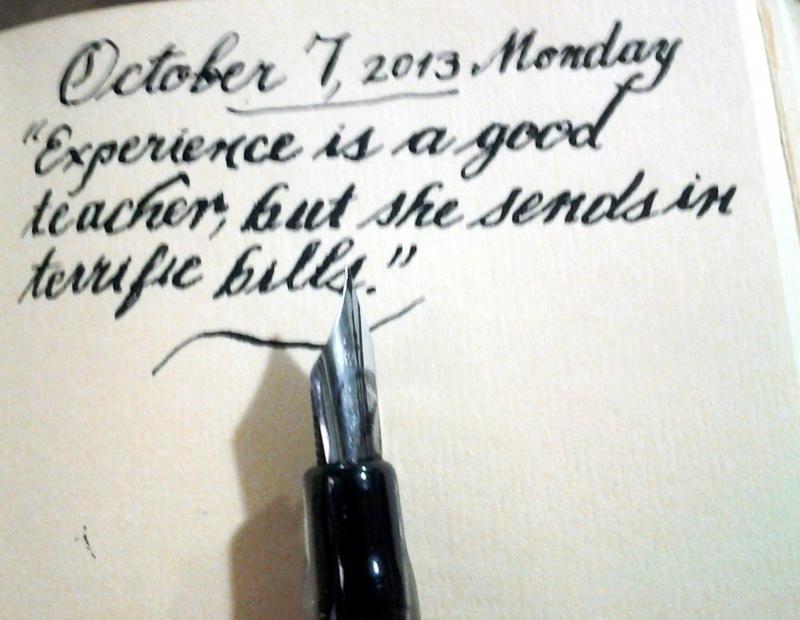 October 7, 2013. Monday
"Experience is a good
teacher, but she sends in
terrific bills."